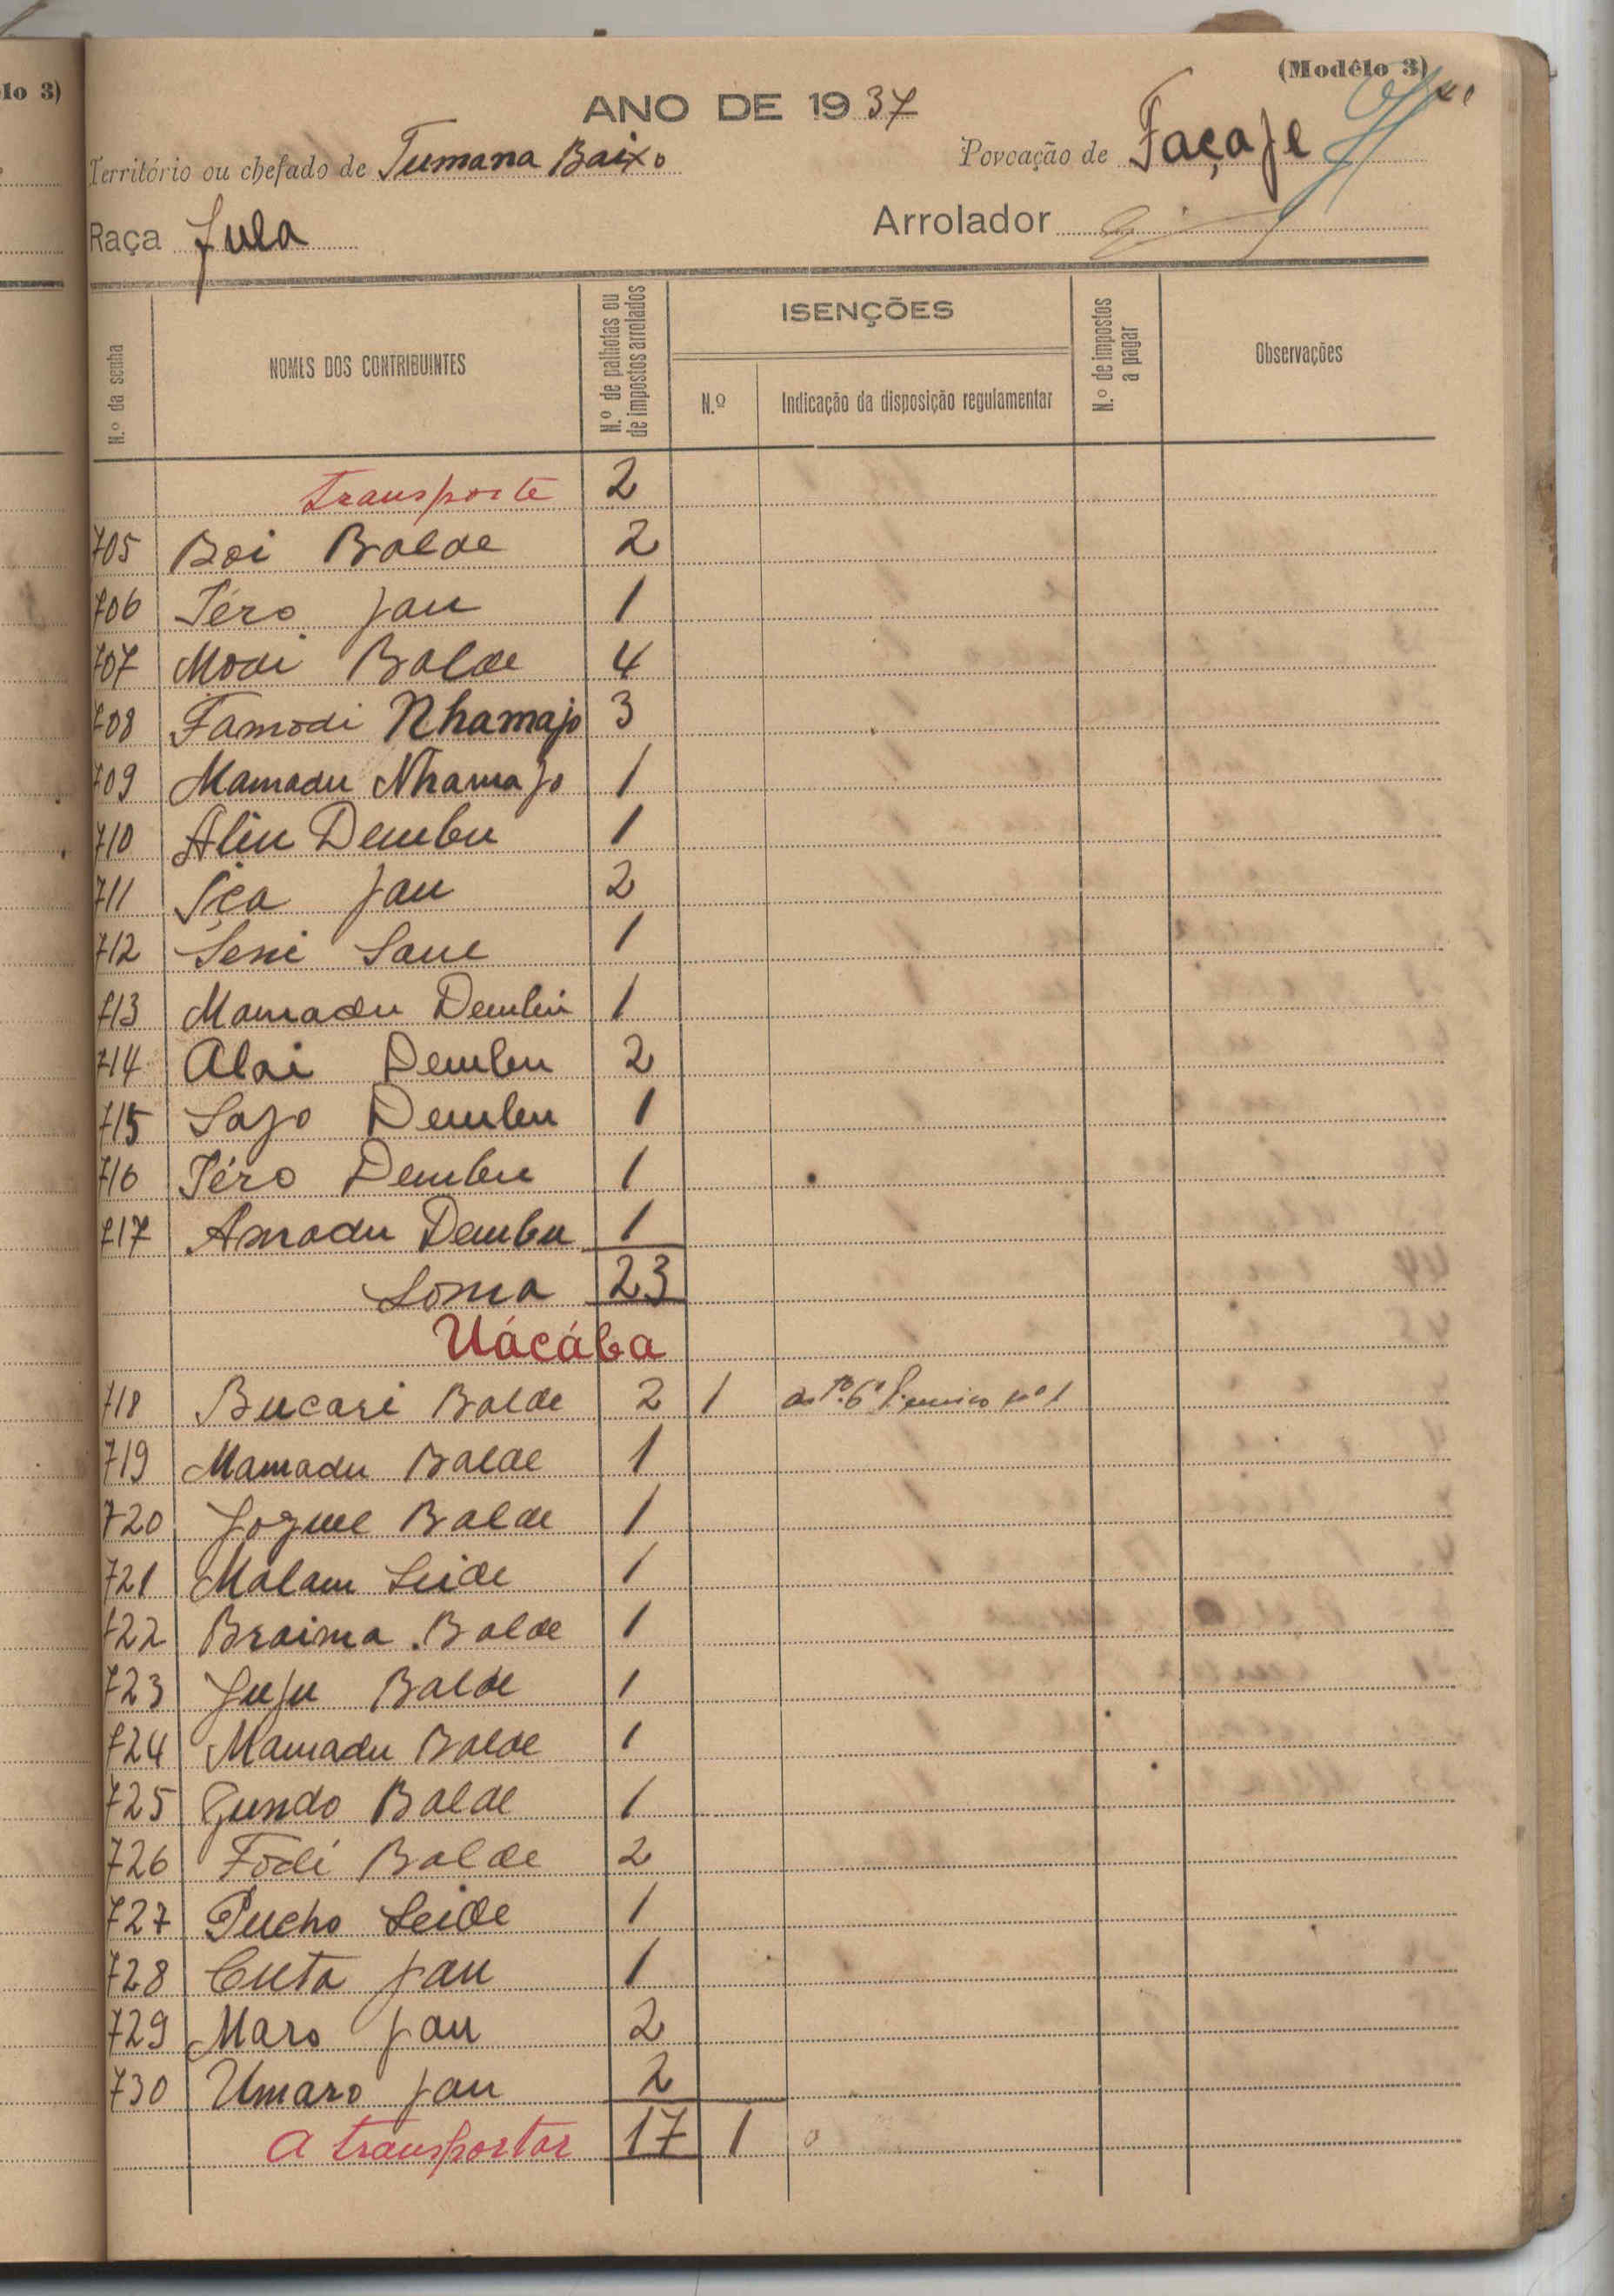 lo 3)
(Modêlo 3)
ANO DE 1937
Território ou chefado de Tumana Baixo
Povoação de Façaje
Raça Fula
Arrolador
N.º da senha
NOMES DOS CONTRIBUINTES
N.º de palhotas ou de impostos arrolados
ISENÇÕES
N.º
Indicação da disposição regulamentar
N.º de impostos a pagar
Observações
Transporte 2
705 Boi Balde 2
706 Téro Jau 1
707 Modi Balde 4
708 Famodi Nhamajo 3
709 Mamadu Nhamajo 1
710 Aliu Dembu 1
711 Iça Jau 2
712 Seni Sane 1
713 Mamadu Dembu 1
714 Alai Dembu 2
715 Sajo Dembu 1
716 Téro Dembu 1
717 Amadu Dembu 1
Soma 23
Uácába
718 Bucari Balde 2 1 nº 1
719 Mamadu Balde 1
720 Joguel Balde 1
721 Malam Seide 1
722 Braima Balde 1
723 Juju Balde 1
724 Mamadu Balde 1
725 Gundo Balde 1
726 Fodé Balde 2
727 Pucho Seide 1
728 Cuta Jau 1
729 Maro Jau 2
730 Umaro Jau 2
A transportar 17 1